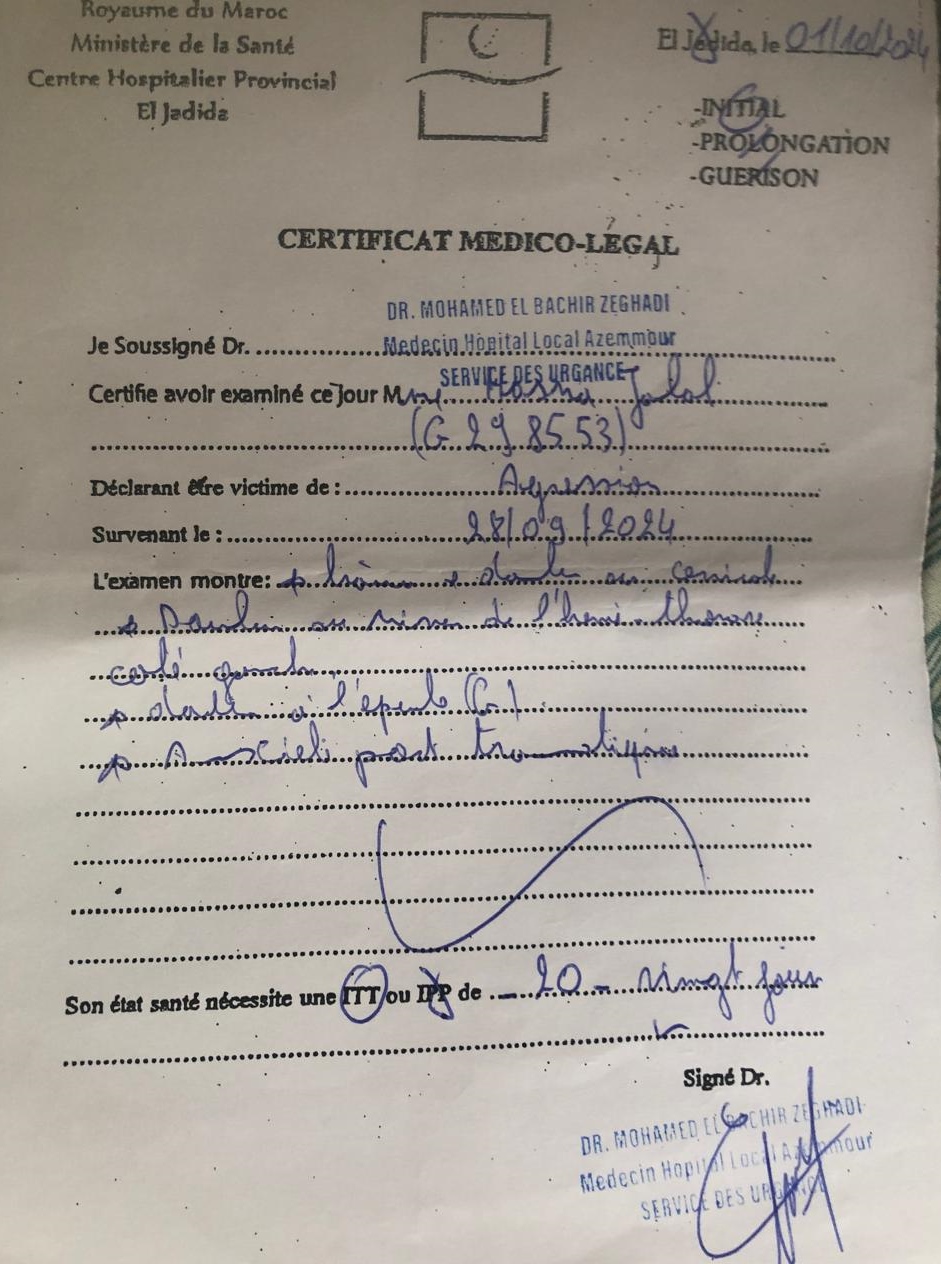 Royaume du Maroc
Ministère de la Santé
Centre Hospitalier Provincial
El Jadida
El Jadida, le 01/10/2024
-INITIAL
-PROLONGATION
-GUERISON
CERTIFICAT MEDICO-LEGAL
DR. MOHAMED EL BACHIR ZEGHADI
Je Soussigné Dr. Medecin Hôpital Local Azemmour
SERVICE DES URGANCE
Certifie avoir examiné ce jour Mme Hasna Jalal
(G 298553)
Déclarant être victime de : Agression
Survenant le : 28/09/2024
L'examen montre:
au niveau de l'hemi-thorax
coté gauche
à l'épaule (G)
post traumatique
Son état santé nécessite une ITT ou IPP de - 20 - vingt jours
Signé Dr.
DR. MOHAMED EL BACHIR ZEGHADI
Medecin Hopital Local Azemmour
SERVICE DES URGANCE